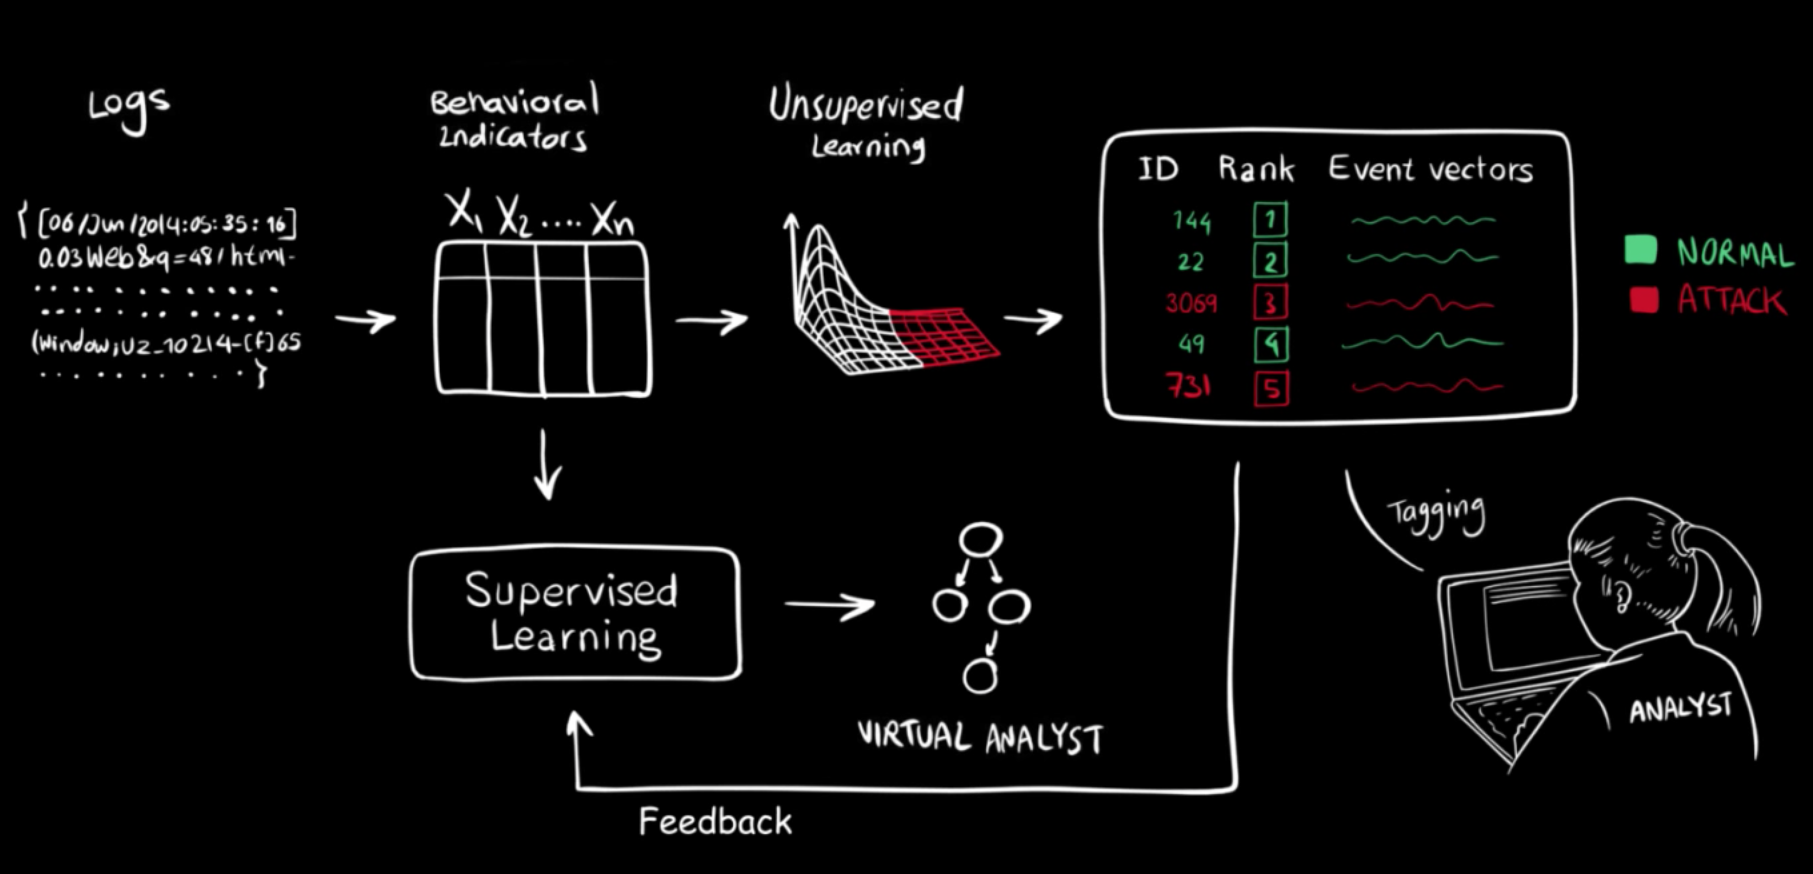 Logs
{ [06/Jun/2014:05:35:16]
0.03Web&q=48/html-
(window;U2_10214-(f]65
}
Behavioral
Indicators
X1 X2 .... Xn
Unsupervised
Learning
ID Rank Event vectors
144 1
22 2
3069 3
49 4
731 5
NORMAL
ATTACK
Tagging
ANALYST
Supervised
Learning
VIRTUAL ANALYST
Feedback